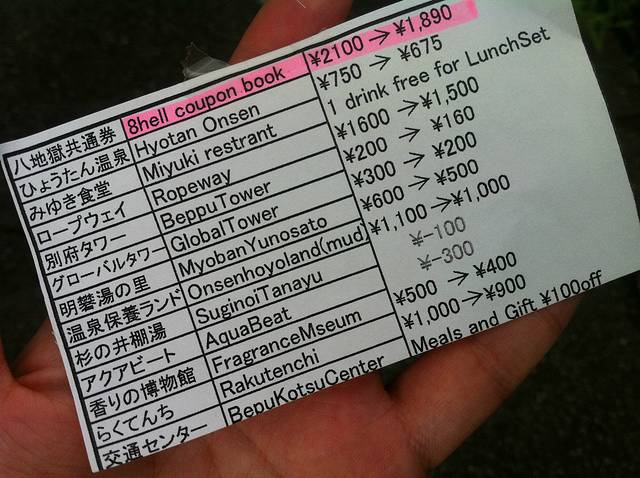 八地獄共通券 8hell coupon book ¥2100→¥1,890
ひょうたん温泉 Hyotan Onsen ¥750 → ¥675
みゆき食堂 Miyuki restrant 1 drink free for LunchSet
ロープウェイ Ropeway ¥1600→¥1,500
別府タワー BeppuTower ¥200 → ¥160
グローバルタワー GlobalTower ¥300 → ¥200
明礬湯の里 MyobanYunosato ¥600 → ¥500
温泉保養ランド Onsenhoyoland(mud) ¥1,100→¥1,000
杉の井棚湯 SuginoiTanayu ¥-100
アクアビート AquaBeat ¥-300
香りの博物館 FragranceMseum ¥500 →¥400
らくてんち Rakutenchi ¥1,000→¥900
交通センター BepuKotsuCenter Meals and Gift ¥100off